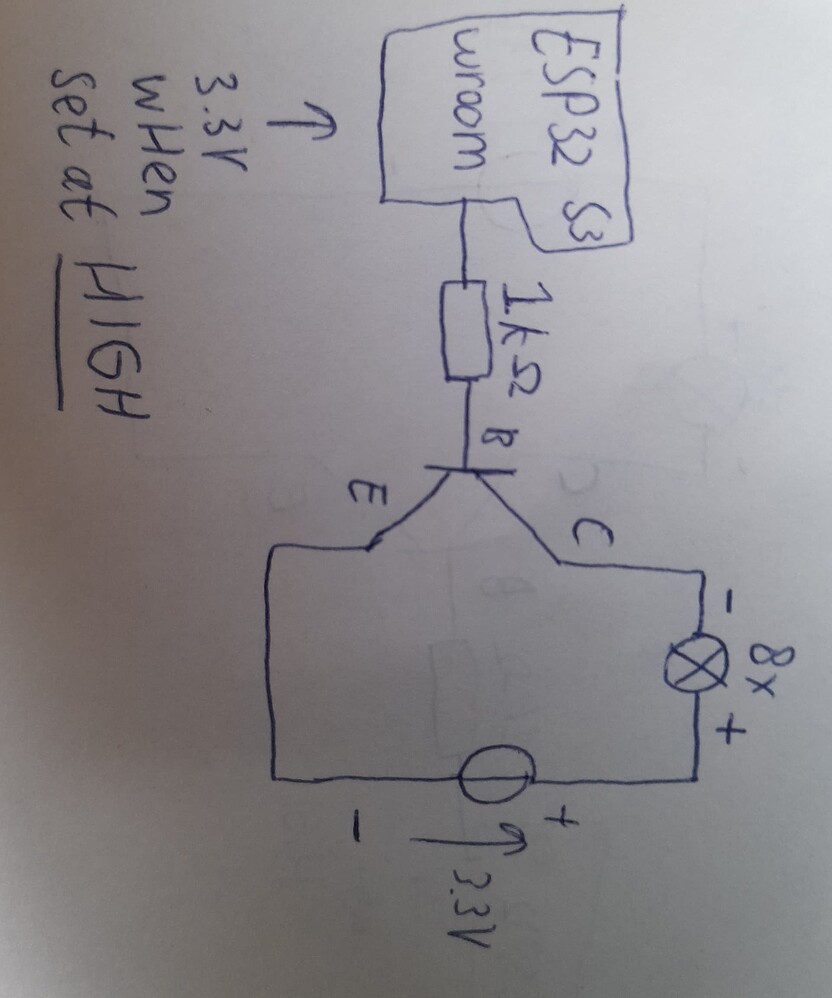 ESP32 S3
wroom
3.3V
wHen
set at HIGH
1kΩ
B
C
E
-
8x
+
+
-
3.3V